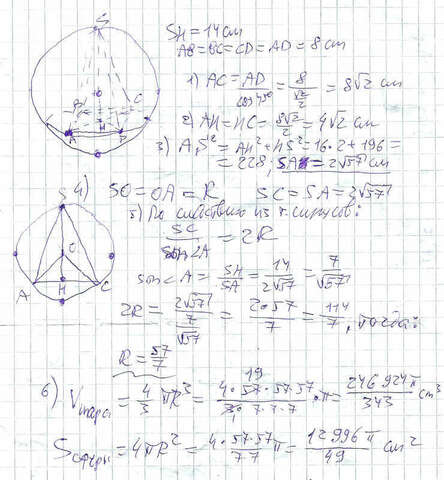 S
8
A
H
C
D
SH = 14 см
AB=BC=CD=AD=8 см
1) AC = AD/cos45° = 8/(√2/2) = 8√2 см
2) AH=HC= 8√2/2 = 4√2 см
3) AS² = AH² + HS² = 16·2+196 =
= 228, SA = 2√57 см
4) SO=OA=R SC=SA=2√57
5) По следствию из т. синусов:
SC/sin∠A = 2R
sin∠A = SH/SA = 14/2√57 = 7/√57
2R = 2√57/(7/√57) = 2·57/7 = 114/7, тогда:
R = 57/7
S
O
A
H
C
6) Vшара = 4/3 πR³ = 4·57·57·57/3·7·7·7 · π = 246924π/343 см³
19
1
Sсферы = 4πR² = 4·57·57/7·7 π = 12996π/49 см²